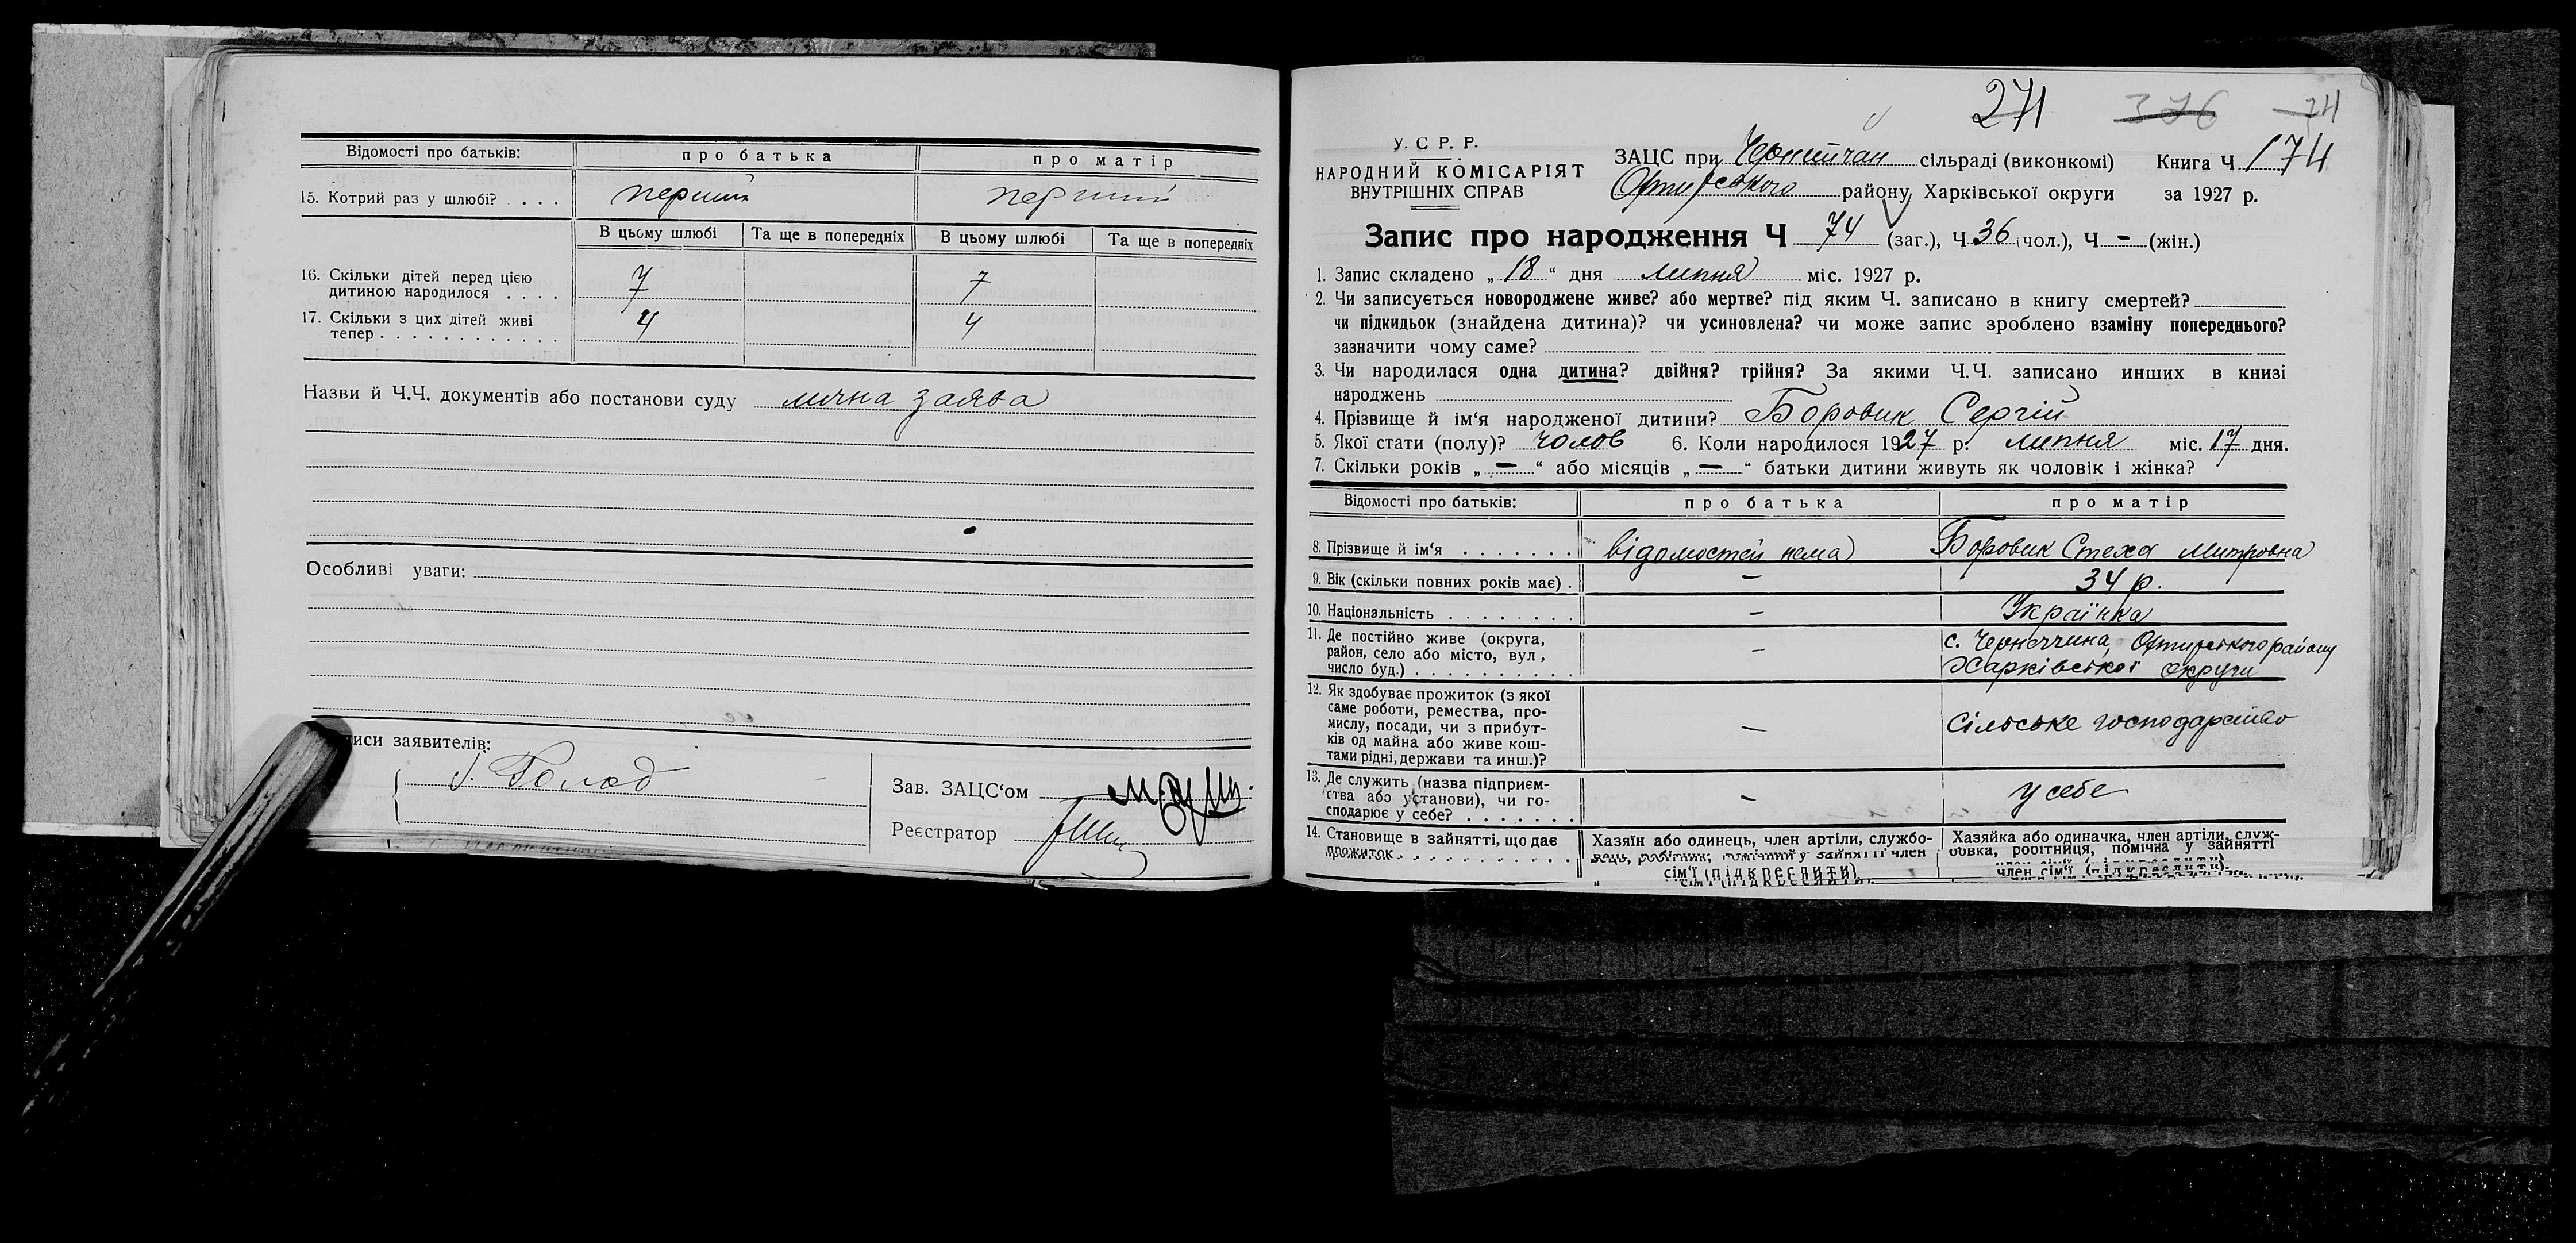 Відомості про батьків: про батька про матір
15. Котрий раз у шлюбі? . . . . перший перший
В цьому шлюбі Та ще в попередніх В цьому шлюбі Та ще в попередніх
16. Скільки дітей перед цією
дитиною народилося . . . . 7 7
17. Скільки з цих дітей живі
тепер . . . . . . . . . . . . 4 4
Назви й Ч.Ч. документів або постанови суду лична заява
Особливі уваги:
писи заявителів:
Голод
Зав. ЗАЦС‘ом
Реєстратор
271 376 74
У. С. Р. Р.
НАРОДНИЙ КОМІСАРІЯТ
ВНУТРІШНІХ СПРАВ
ЗАЦС при сільраді (виконкомі) Книга Ч. 174
Охтирського району, Харківської округи за 1927 р.
Запис про народження Ч 74 (заг.), Ч 36 (чол.), Ч - (жін.)
1. Запис складено „ 18 “ дня липня міс. 1927 р.
2. Чи записується новороджене живе? або мертве? під яким Ч. записано в книгу смертей?
чи підкидьок (знайдена дитина)? чи усиновлена? чи може запис зроблено взаміну попереднього?
зазначити чому саме?
3. Чи народилася одна дитина? двійня? трійня? За якими Ч.Ч. записано инших в книзі
народжень
4. Прізвище й ім‘я народженої дитини? Боровик Сергій
5. Якої стати (полу)? чолов 6. Коли народилося 1927 р. липня міс. 17 дня.
7. Скільки років „ — “ або місяців „ — “ батьки дитини живуть як чоловік і жінка?
Відомості про батьків: про батька про матір
8. Прізвище й ім‘я . . . . . . . відомостей нема Боровик Стеха Митровна
9. Вік (скільки повних років має) . — 34 р.
10. Національність . . . . . . . . — Українка
11. Де постійно живе (округа,
район, село або місто, вул.,
число буд.) . . . . . . . . . . — с. Чернеччина, Охтирського району
Харківської округи
12. Як здобуває прожиток (з якої
саме роботи, ремества, про-
мислу, посади, чи з прибут-
ків од майна або живе кош-
тами рідні, держави та инш.)? — сільське господарство
13. Де служить (назва підприєм-
ства або установи), чи го-
сподарює у себе? . . . . . . . — у себе
14. Становище в зайнятті, що дає
прожиток . . . . . . . . . . .
Хазяїн або одинець, член артіли, службо-
вець, робітник, помічний у зайнятті член
сім'ї (підкреслити)
Хазяйка або одиначка, член артіли, служ-
бовка, робітниця, помічна у зайнятті
член сім'ї (підкреслити).